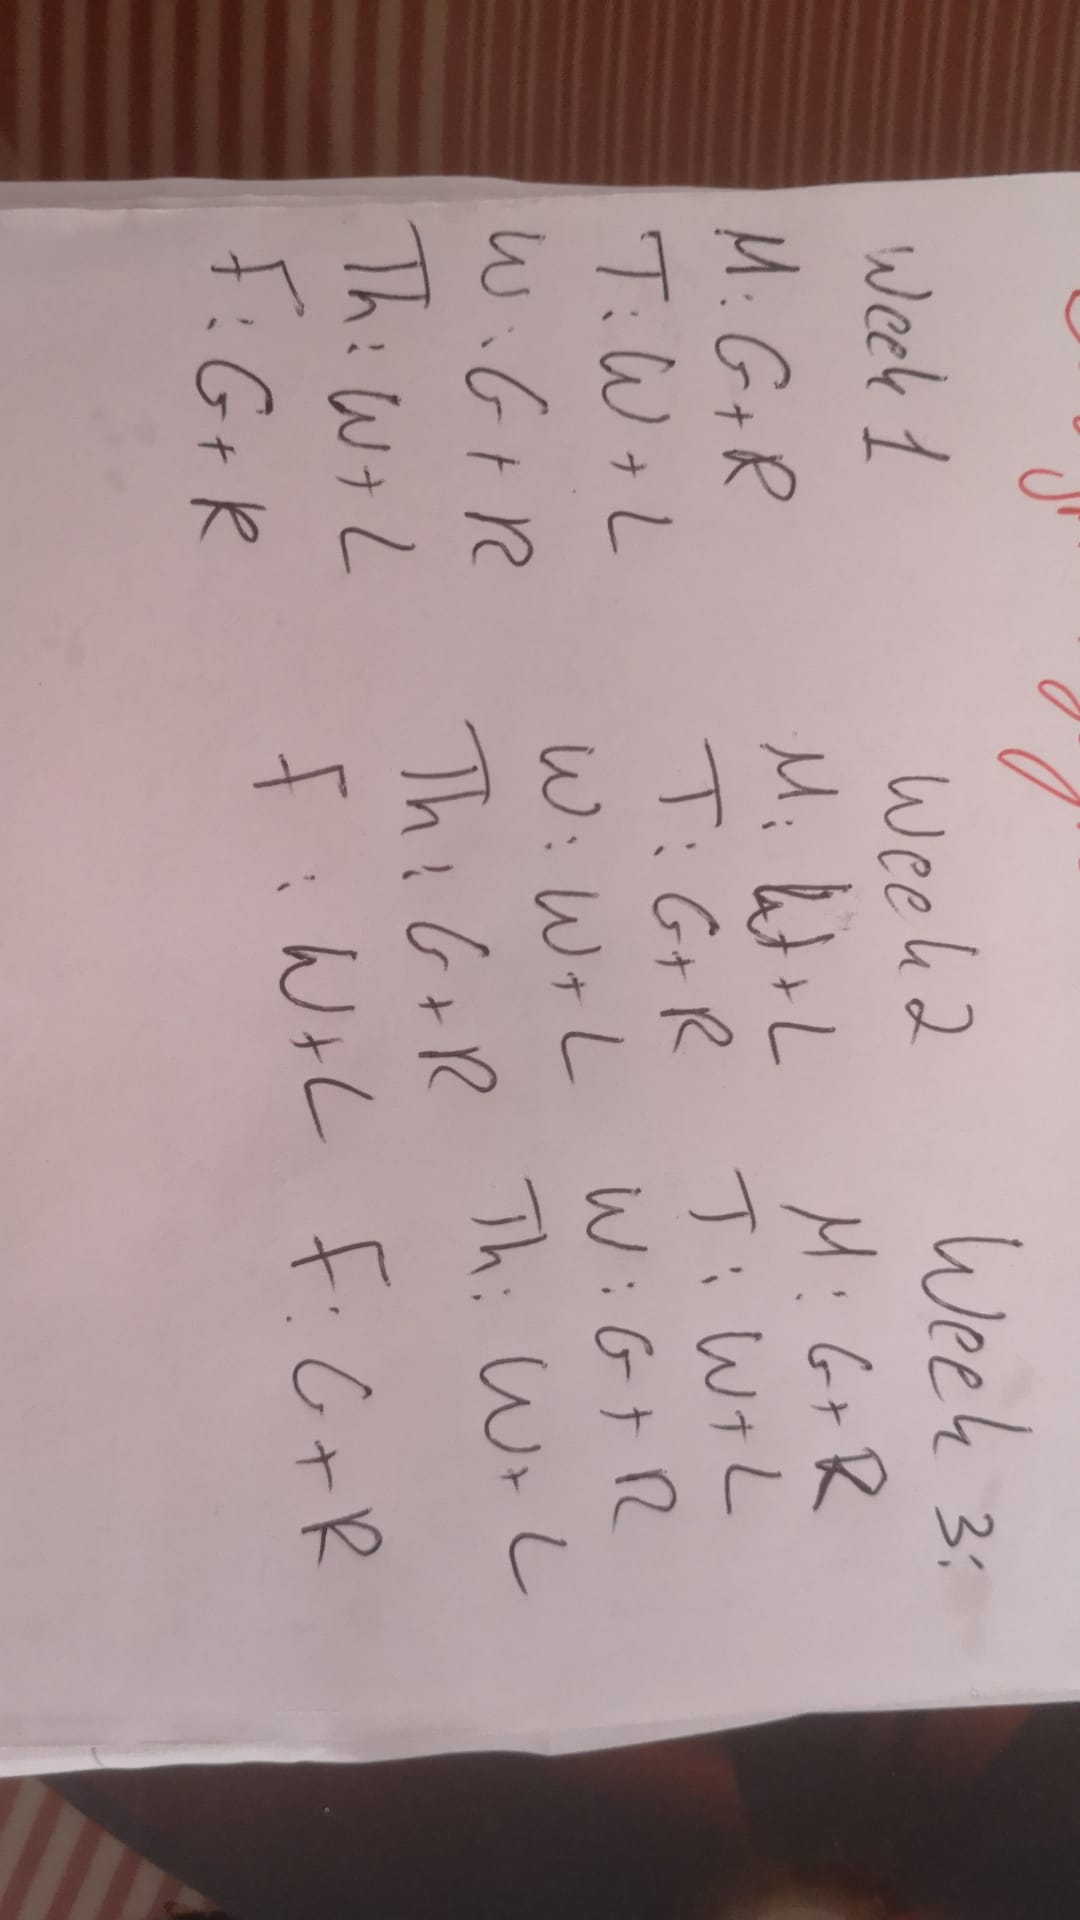 Week 1
M: G+R
T: W+L
W: G+R
Th: W+L
F: G+R
Week 2
M: W+L
T: G+R
W: W+L
Th: G+R
F: W+L
Week 3:
M: G+R
T: W+L
W: G+R
Th: W+L
F: G+R